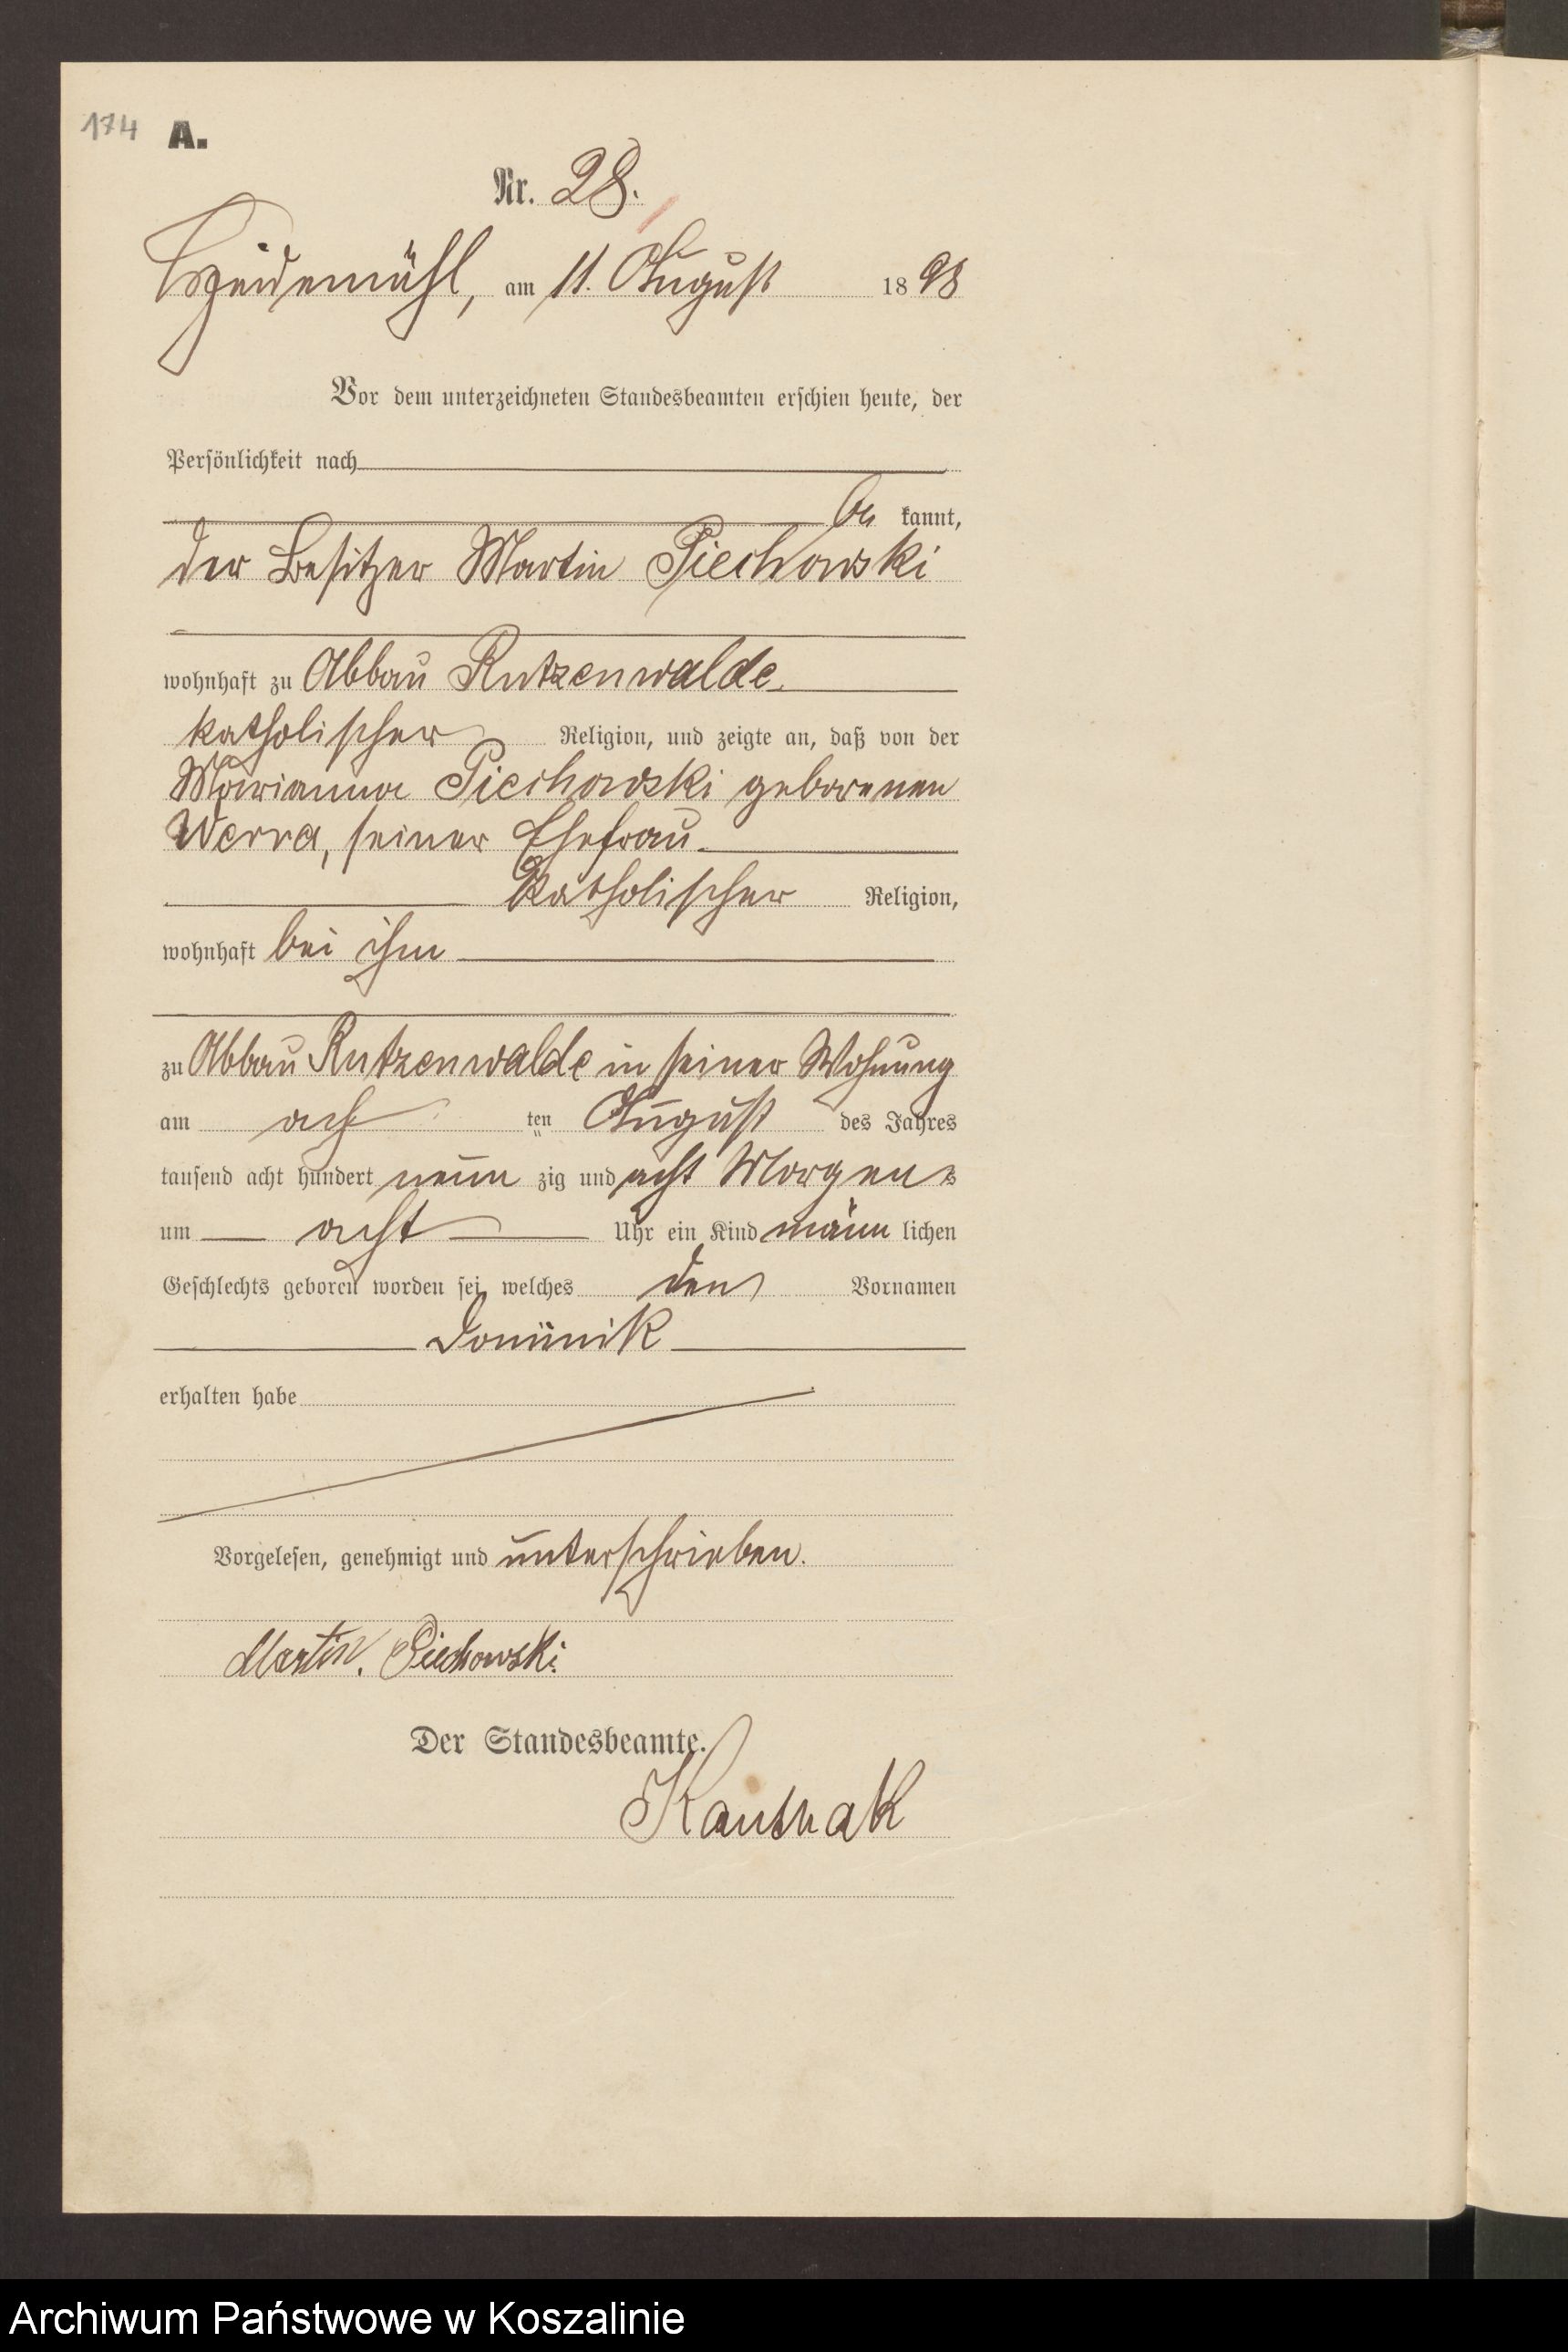 174 A.
Nr. 28.
Heidemühl, am 11. August 1898
Vor dem unterzeichneten Standesbeamten erschien heute, der
Persönlichkeit nach
be kannt,
der Besitzer Martin Piechowski
wohnhaft zu Abbau Rutzenwalde
katholischer Religion, und zeigte an, daß von der
Marianna Piechowski geborenen
Werra, seiner Ehefrau
katholischer Religion,
wohnhaft bei ihm
zu Abbau Rutzenwalde in seiner Wohnung
am ach ten August des Jahres
tausend acht hundert neun zig und acht Morgens
um acht Uhr ein Kind männ lichen
Geschlechts geboren worden sei, welches den Vornamen
Dominik
erhalten habe
Vorgelesen, genehmigt und unterschrieben.
Martin Piechowski
Der Standesbeamte.
Archiwum Państwowe w Koszalinie